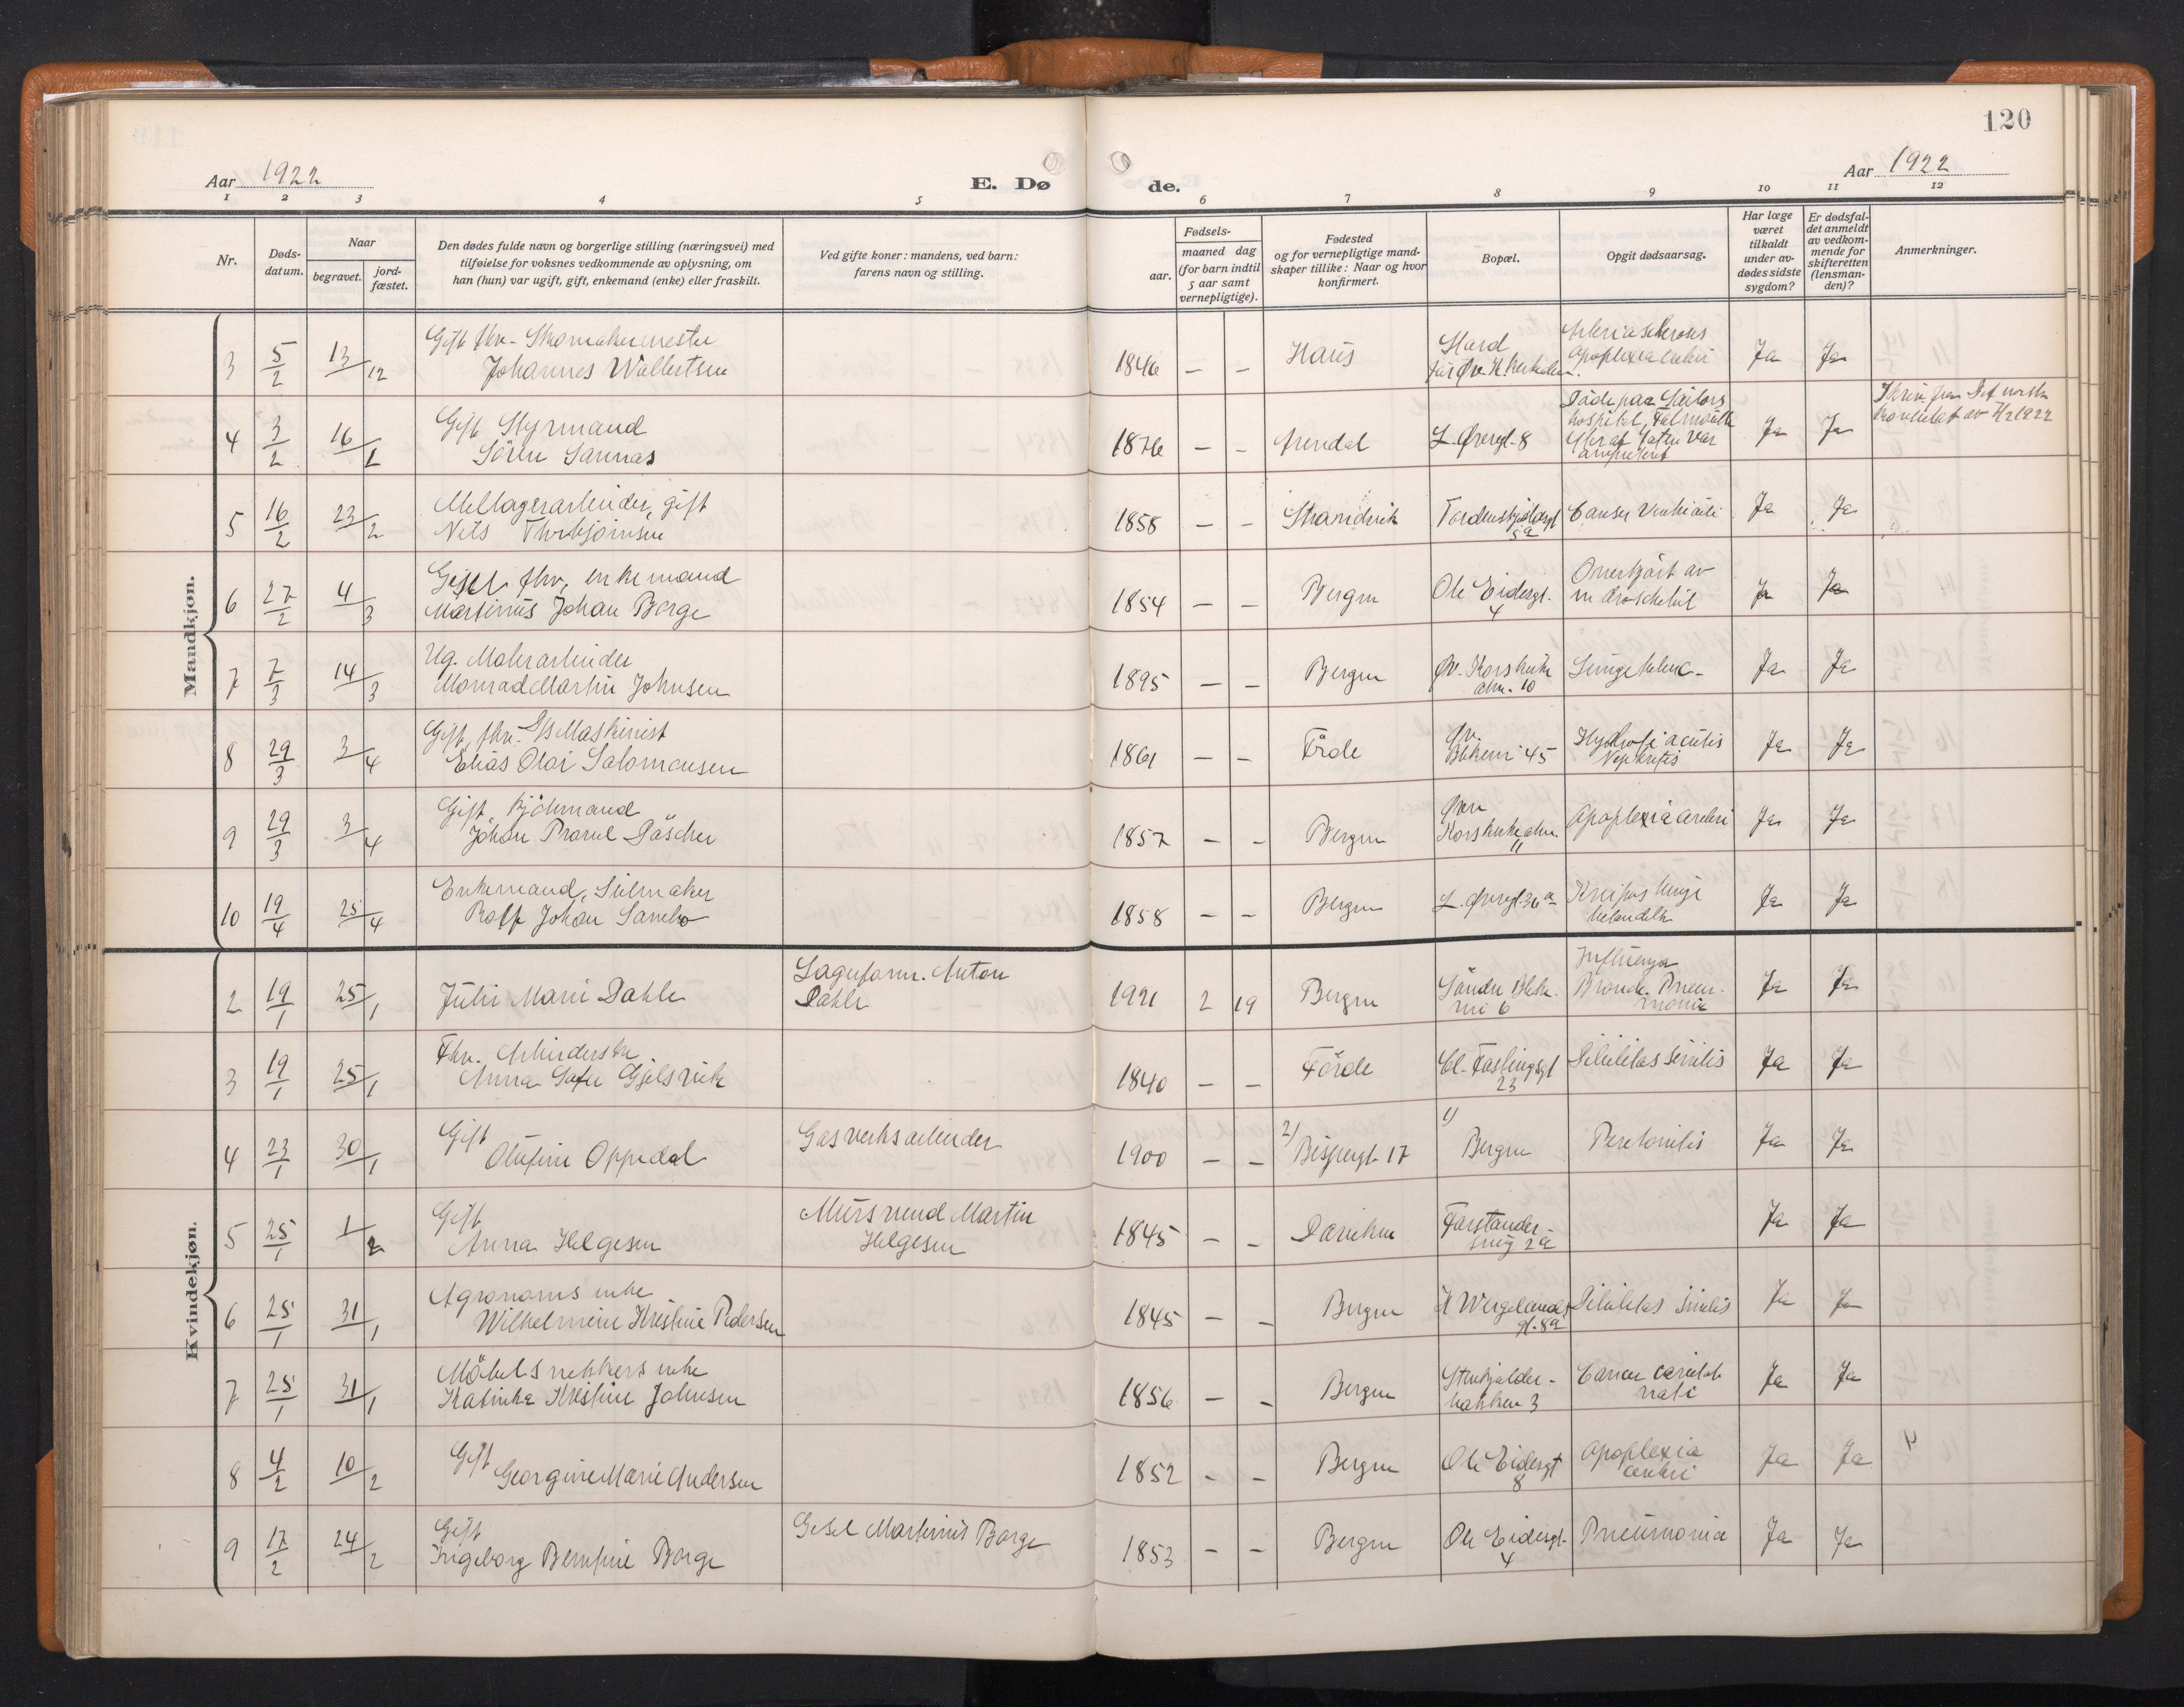 120
Aar 1922
E. Dø
de.
Aar 1922
1 2 3 4 5 6 7 8 9 10 11 12
Nr.
Døds-
datum.
Naar
begravet.
jord-
fæstet.
Den dødes fulde navn og borgerlige stilling (næringsvei) med
tilføielse for voksnes vedkommende av oplysning, om
han (hun) var ugift, gift, enkemand (enke) eller fraskilt.
Ved gifte koner: mandens, ved barn:
farens navn og stilling.
Fødsels-
aar.
maaned dag
(for barn indtil
5 aar samt
vernepligtige).
Fødested
og for vernepligtige mand-
skaper tillike: Naar og hvor
konfirmert.
Bopæl.
Opgit dødsaarsag.
Har læge
været
tilkaldt
under av-
dødes sidste
sygdom?
Er dødsfal-
det anmeldt
av vedkom-
mende for
skifteretten
(lensman-
den)?
Anmerkninger.
Mandkjøn.
3 5/2 13/12 Gift fhv. Skomakermester
Johannes Wallertsen
1846 – – Haus Ja Ja
4 3/2 16/1 Gift Styrmand
Søren Sannas
1876 – – Arendal L. Øvregt. 8
Døde paa Sailors
hospital, Falmouth
amputeret
Ja Ja
5 16/2 23/2 gift
Nils Thorbjørnsen
1858 – – Strandvik Tordenskjoldsgt
5a
Cancer Ventriculi Ja Ja
6 27/2 4/3 Gesel fhv, enkemand
Martinus Johan Borge
1854 – – Bergen Ole Eidesgt.
4
Overkjørt av
en droschebil
Ja Ja
7 7/3 14/3 Ug. Malerarbeider
Monrad Martin Johnsen
1895 – – Bergen Øv. Korskirke
alm. 10
Ja Ja
8 29/3 3/4 Gift, fhv. Maskinist
Elias Olai Salomonsen
1861 – – Førde Øv.
Blekevei 45
Nephritis
Ja Ja
9 29/3 3/4 Gift
Johan
1857 – – Bergen Øvre
Korskirkealm.
11
Apoplexia cerebri Ja Ja
10 19/4 25/4 Enkemand, Seilmaker
Rolf Johan Sambo
1858 – – Bergen L. Øvregt. 36a Ja Ja
Kvindekjøn.
2 19/1 25/1 Julie Marie Dahle
Anton
Dahle
1921 2 19 Bergen Søndre Bleke-
vei 6
Influenza
Bronch. Pneu-
monie
Ja Ja
3 19/1 25/1 Fhv. Arbeiderske
Anna Sofie Gjelsvik
1840 – – Førde Cl. Fastingsgt
23
Debilitas senilis Ja Ja
4 23/1 30/1 Gift
Olufine Oppedal
Gasverksarbeider
1900 – – 2) Bispengt. 17 1) Bergen Peretonitis Ja Ja
5 25/1 1/2 Gift
Anna Helgesen
Mursvend Martin
Helgesen
1845 – – Daviken Forstander-
smug 2a
Ja Ja
6 25/1 31/1 Agronoms enke
Wilhelmine Kristine Pedersen
1845 – – Bergen H Wergelands
gt. 8a
Debilitas senilis Ja Ja
7 25/1 31/1 Møbelsnekkers enke
Katinka Kristine Johnsen
1856 – – Bergen Stenkjelder-
bakken 3
Ja Ja
8 4/2 10/2 Gift
Georgine Marie Andersen
1852 – – Bergen Ole Eidesgt
8
Apoplexia
cerebri
Ja Ja
9 17/2 24/2 Gift
Ingeborg Berntine Borge
Gesel Martinus Borge
1853 – – Bergen Ole Eidesgt.
4
Pneumonia Ja Ja